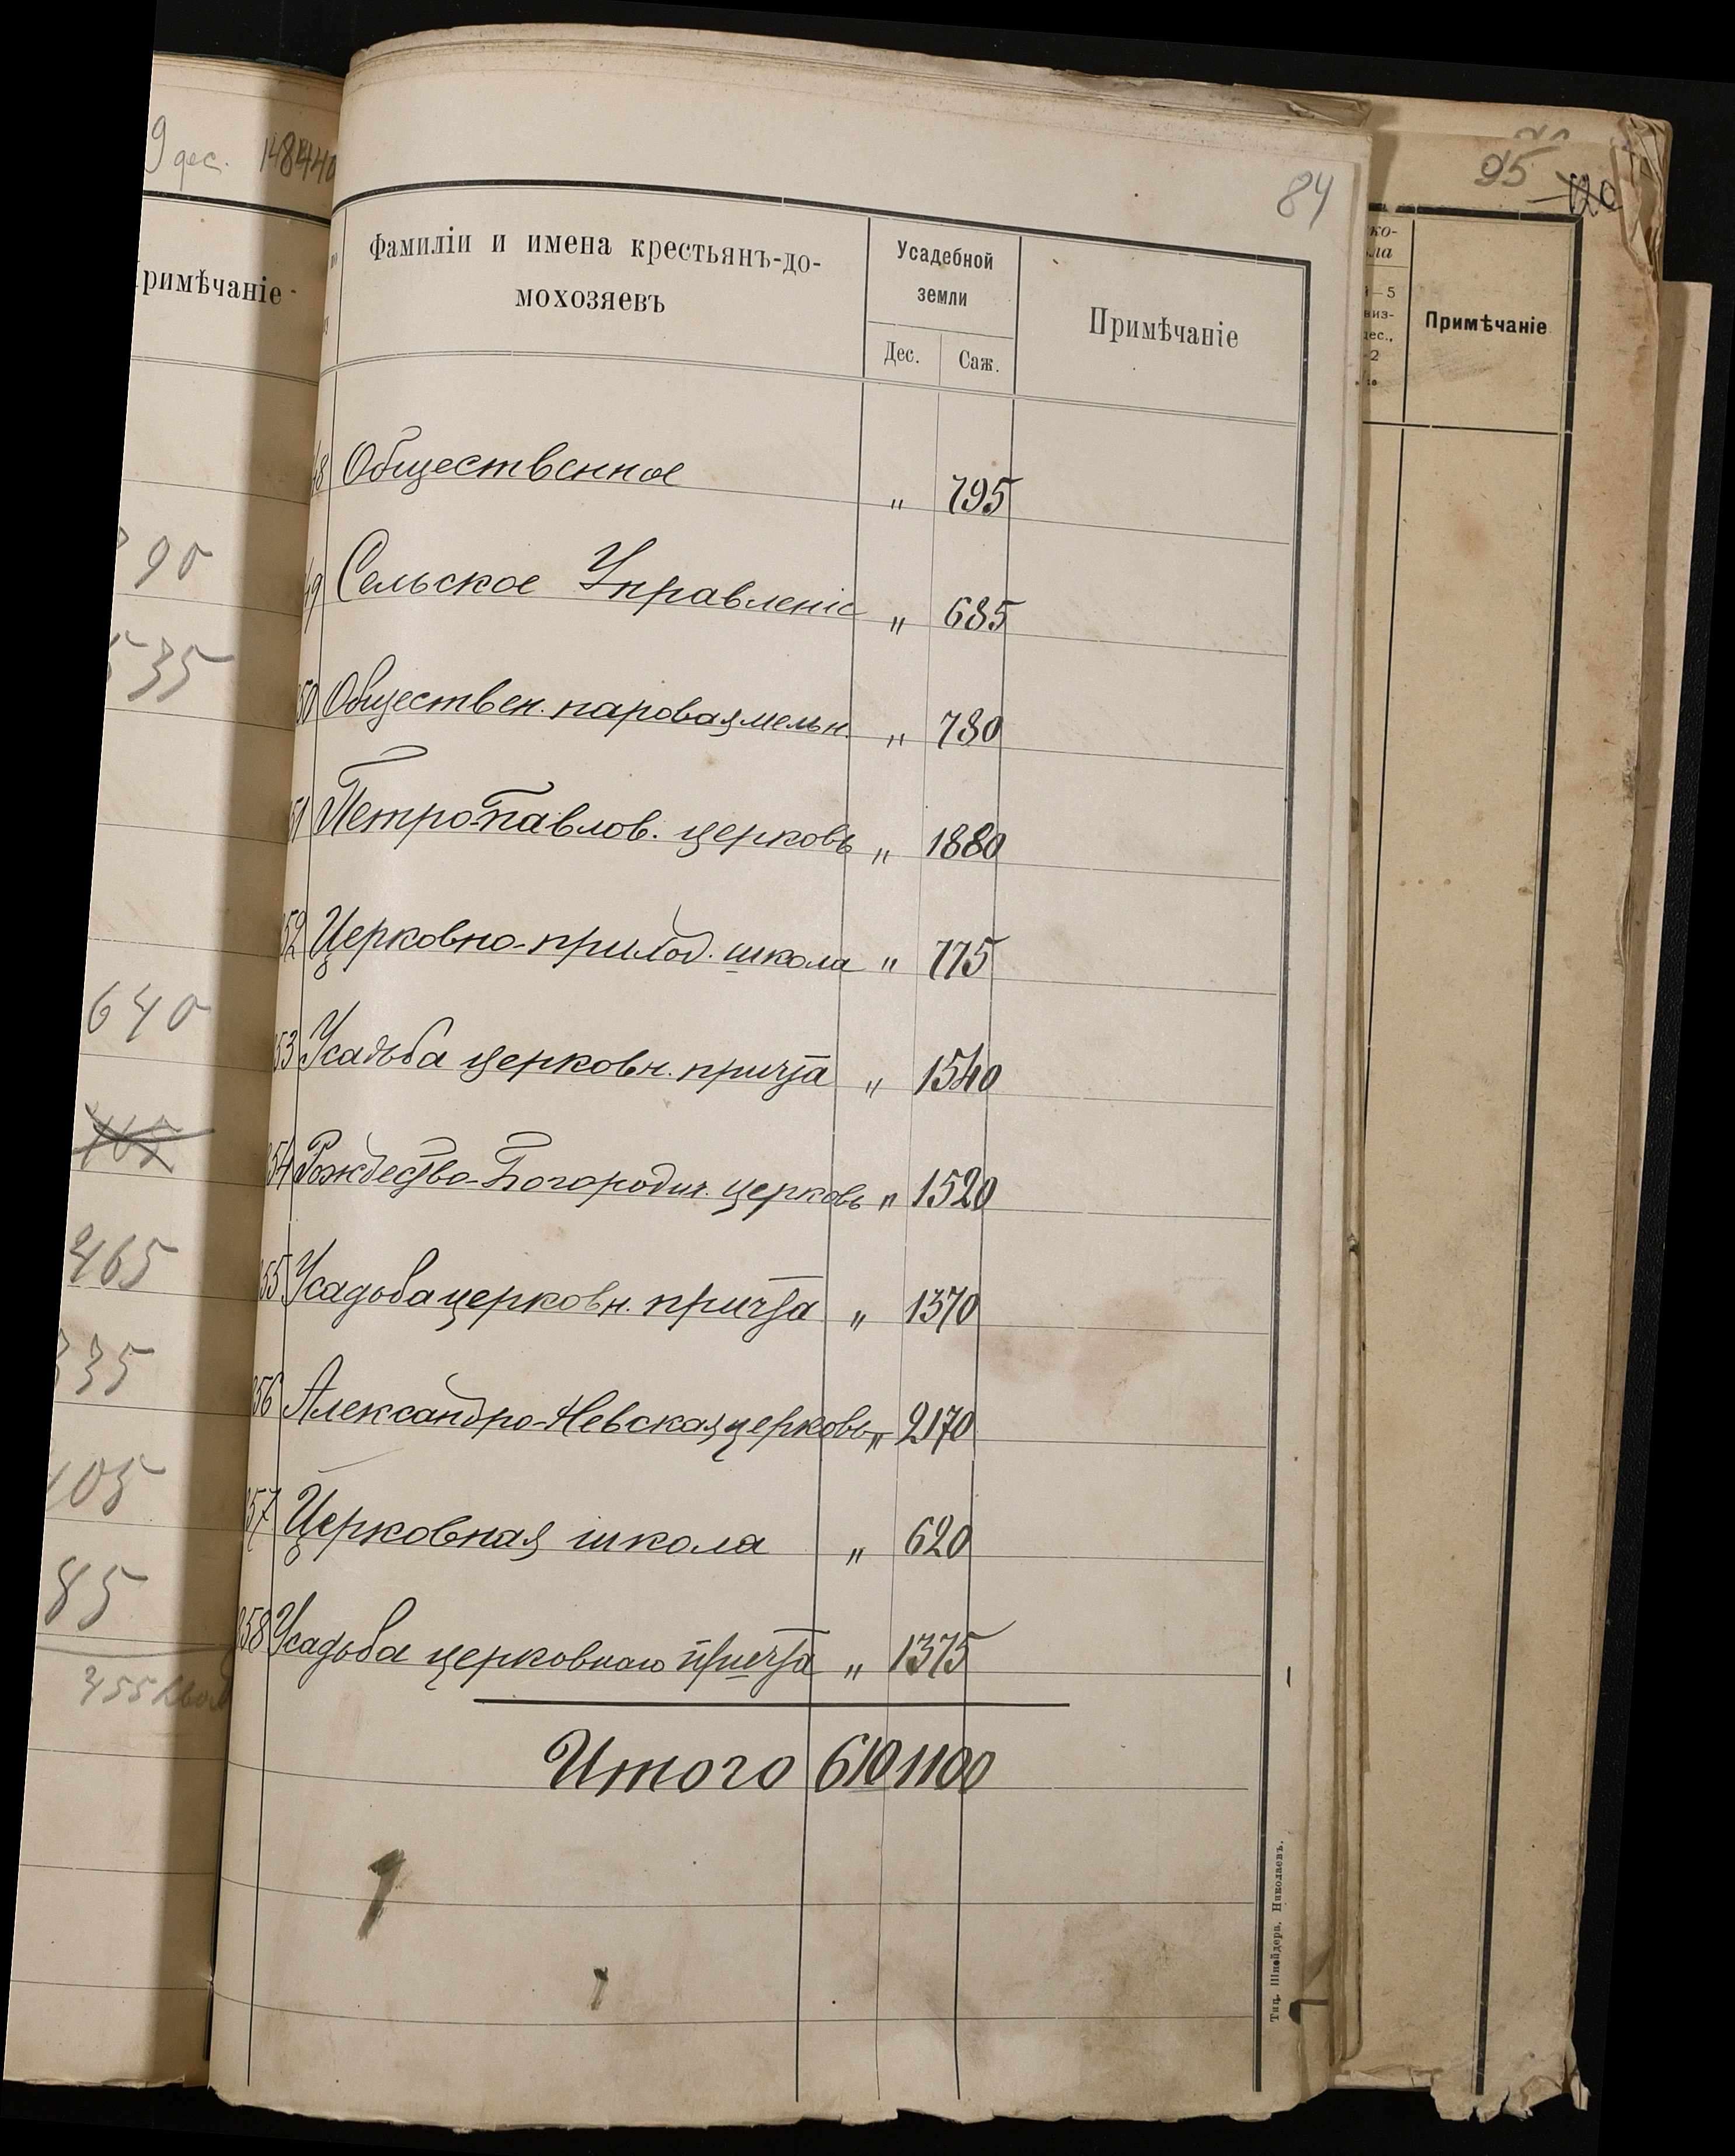 9 дес. 148440
Примѣчаніе
90
535
640
465
335
105
85
84
Фамиліи и имена крестьянъ-до-
мохозяевъ
Усадебной
земли
Дес. Саж.
Примѣчаніе
48 Общественное " 795
49 Сельское Управленіе " 685
50 Обществен. паровая мельн. " 780
51 Петро-Павлов. церковь " 1880
52 Церковно-приход. школа " 775
53 Усадьба церковн. причта " 1540
54 Рождество-Богородич. церковь " 1520
55 Усадьба церковн. причта " 1370
56 Александро-Невская церковь " 2170
57 Церковная школа " 620
58 Усадьба церковнаго причта " 1375
Итого 610 1100
Тип. Шнейдера, Николаевъ.
95
Примѣчаніе